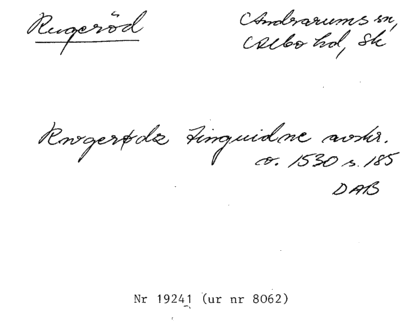 Rugeröd
Andrarums sn,
Albo hd, Sk
Rwgerødz tinguidne avskr.
o. 1530 s. 185
DAB
Nr 19241 (ur nr 8062)